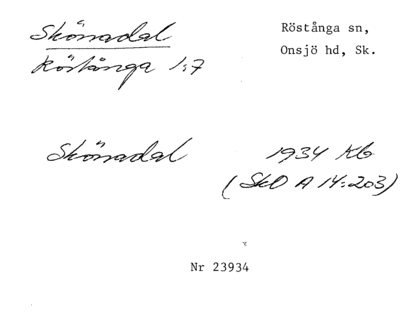 Skönadal
Röstånga 1:7
Röstånga sn,
Onsjö hd, Sk.
Skönadal
1934 Kb
(SkO A 14:203)
Nr 23934